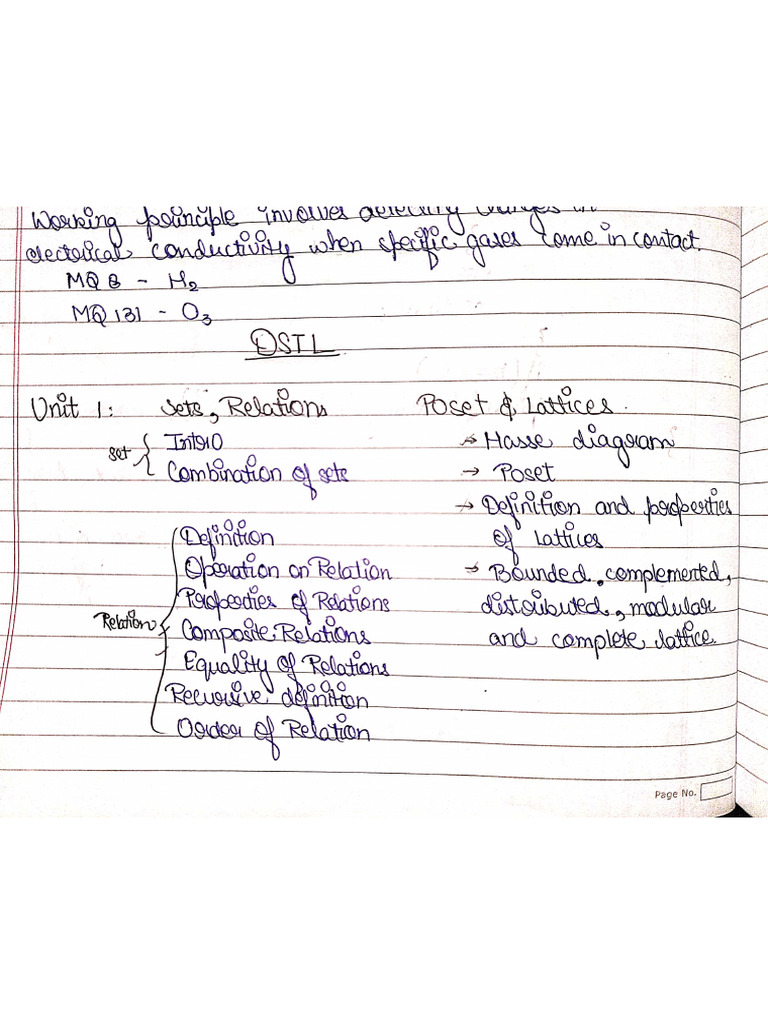 Working principle involves detecting changes in
electorical conductivity when specific gases come in contact.
MQ 8 - H2
MQ 131 - O3
DSTL
Unit 1: Sets, Relations
Set
Intro
Combination of sets
Relation
Definition
Operation on Relation
Properties of Relations
Composite Relations
Equality of Relations
Recursive definition
Order of Relation
Poset & Lattices.
→ Hasse diagram
→ Poset
→ Definition and properties
of Lattices
→ Bounded, complemented,
distributed, modular
and complete lattice.
Page No.